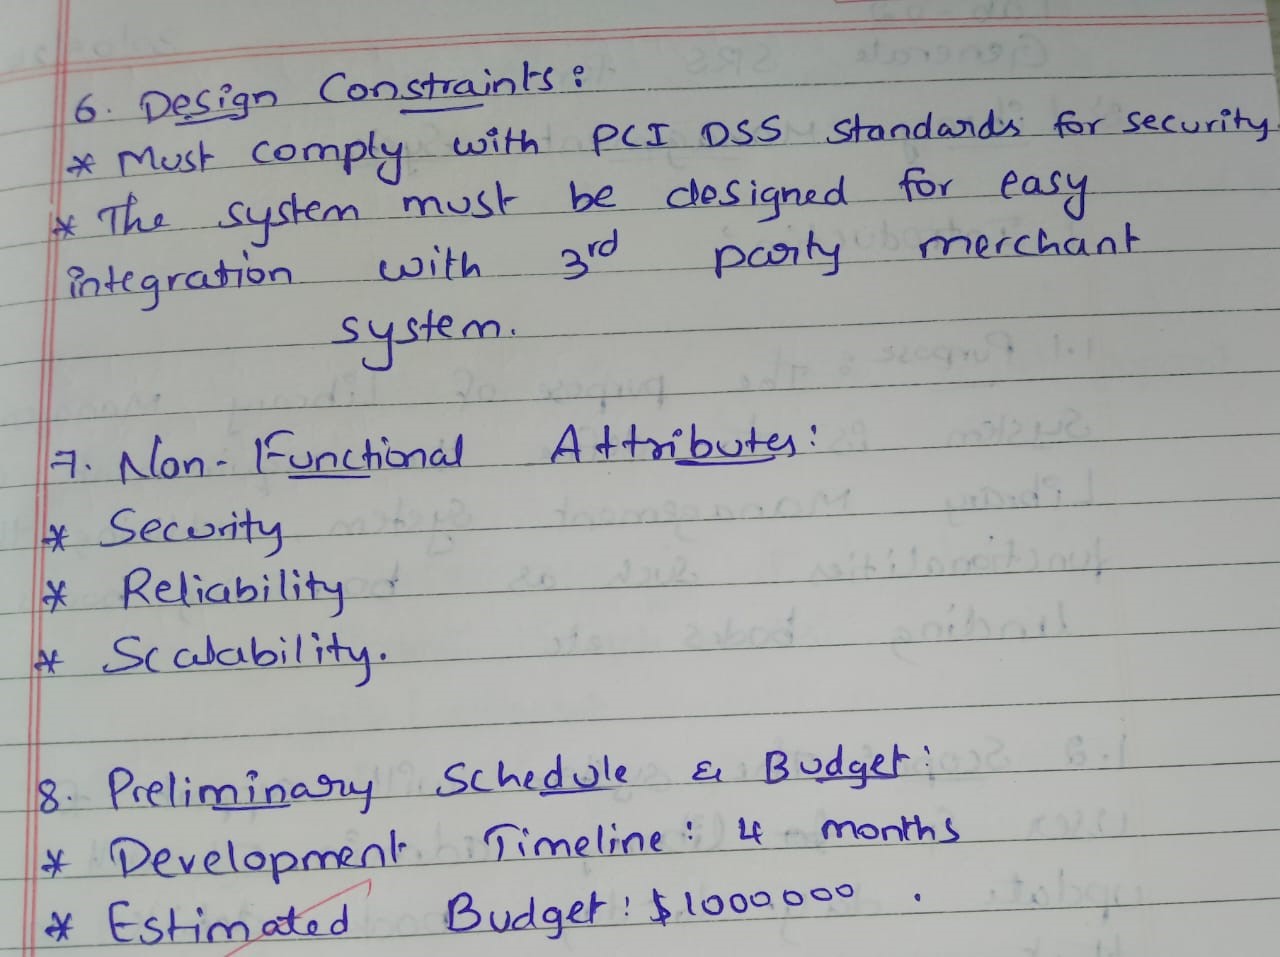 6. Design Constraints:
* Must comply with PCI DSS standards for security.
* The system must be designed for easy
integration with 3rd party merchant
system.
7. Non-Functional Attributes:
* Security
* Reliability
* Scalability.
8. Preliminary Schedule & Budget:
* Development Timeline: 4 months
* Estimated Budget: $1000000.